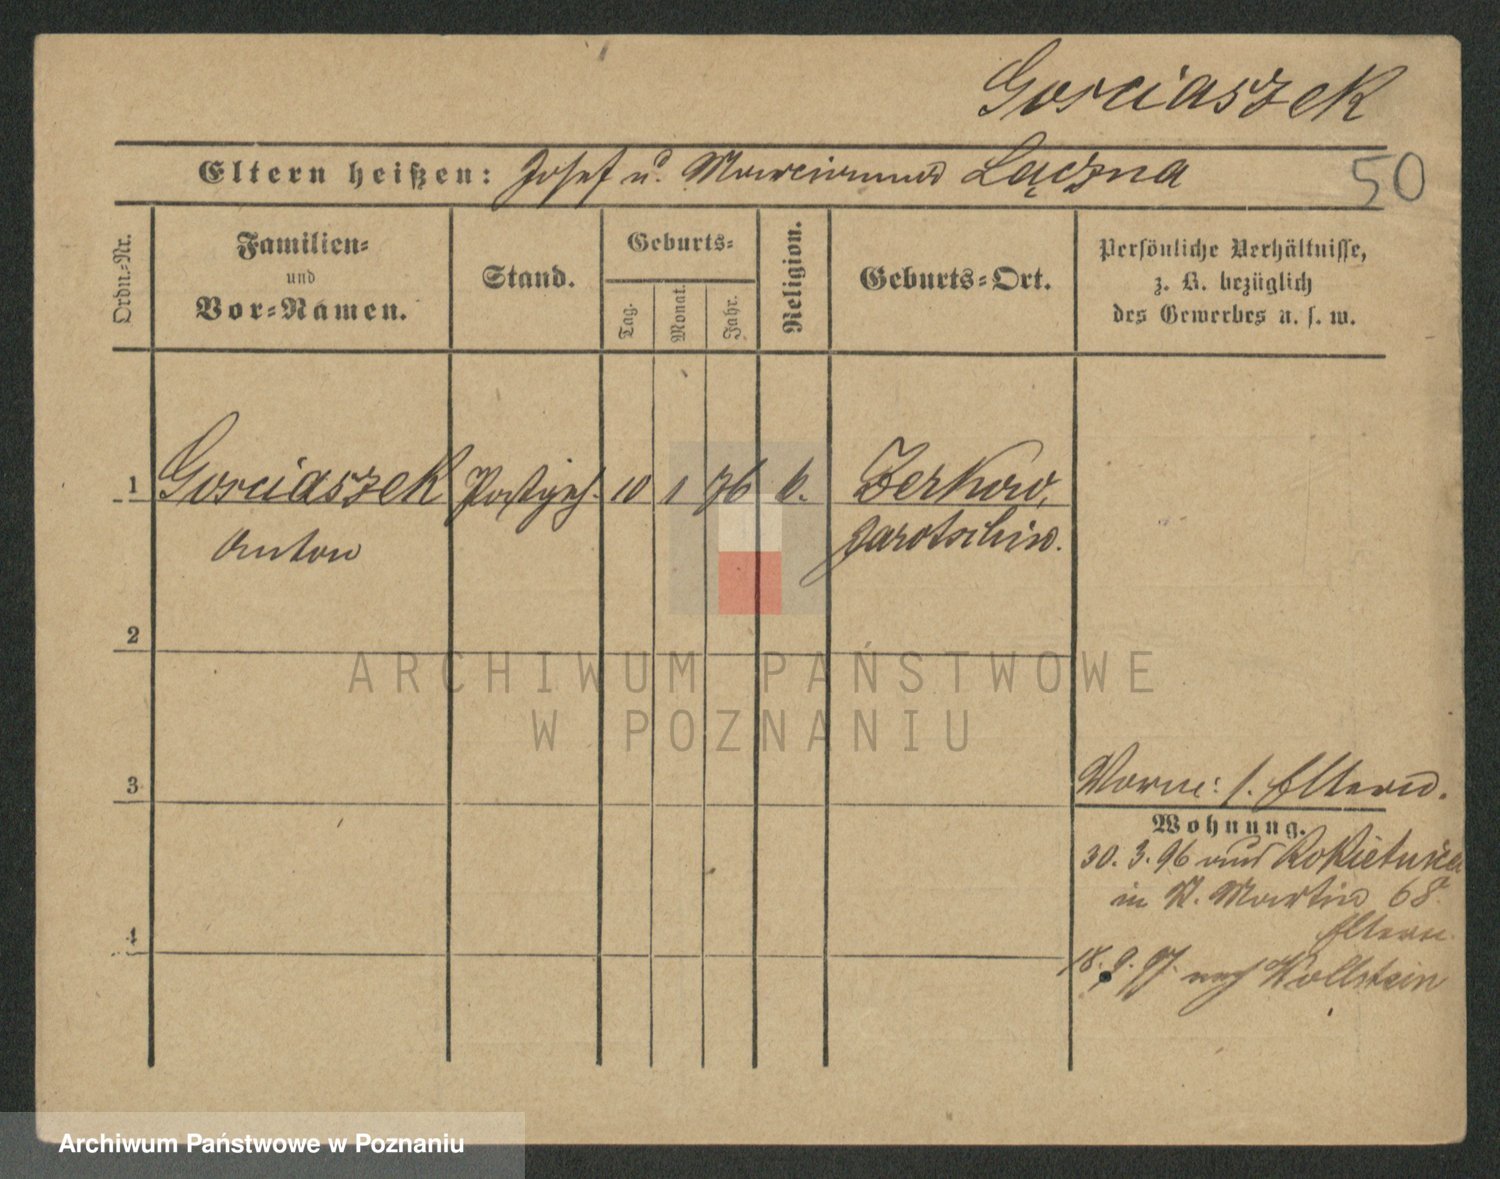 Gosciaszek
Eltern heißen: Josef u. Marcianna Łączna
50
Ordn.-Nr.
Familien-
und
Vor-Namen.
Stand.
Geburts-
Tag.
Monat.
Jahr.
Religion.
Geburts-Ort.
Persönliche Verhältnisse,
z. B. bezüglich
des Gewerbes u. s. w.
1 Gosciaszek Postgeh. 10 1 76 k. Zerkow,
Anton Jarotschin.
2
3
Vorne: s. Eltern.
Wohnung.
30. 3. 96 aus Rokietnica
in St. Martin 68.
Eltern.
4
18. 9. 97. nach Wollstein
ARCHIWUM PAŃSTWOWE
W POZNANIU
Archiwum Państwowe w Poznaniu